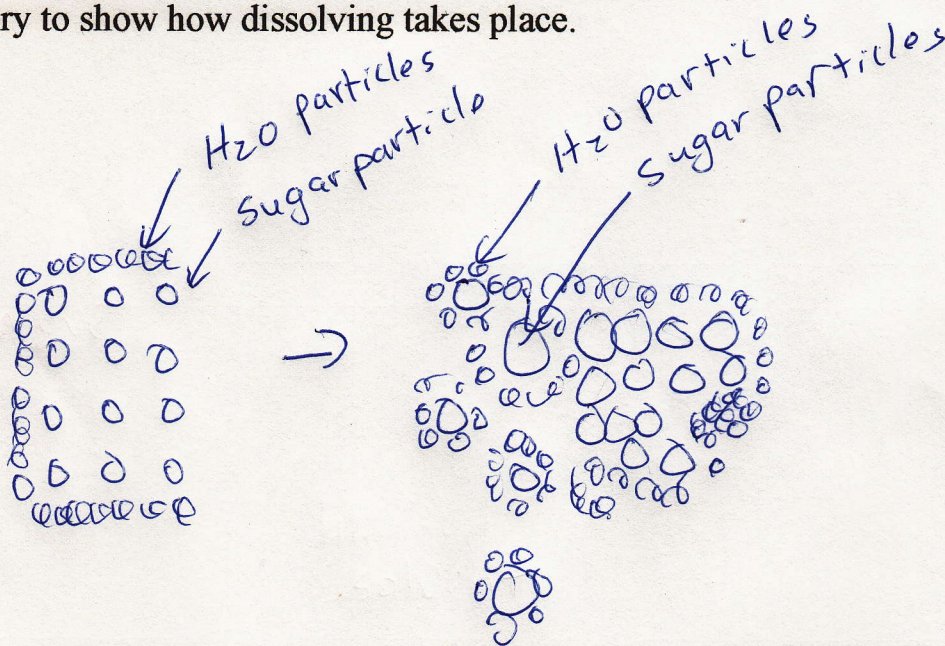 ry to show how dissolving takes place.
H2O particles
sugar particle
H2O particles
sugar particles